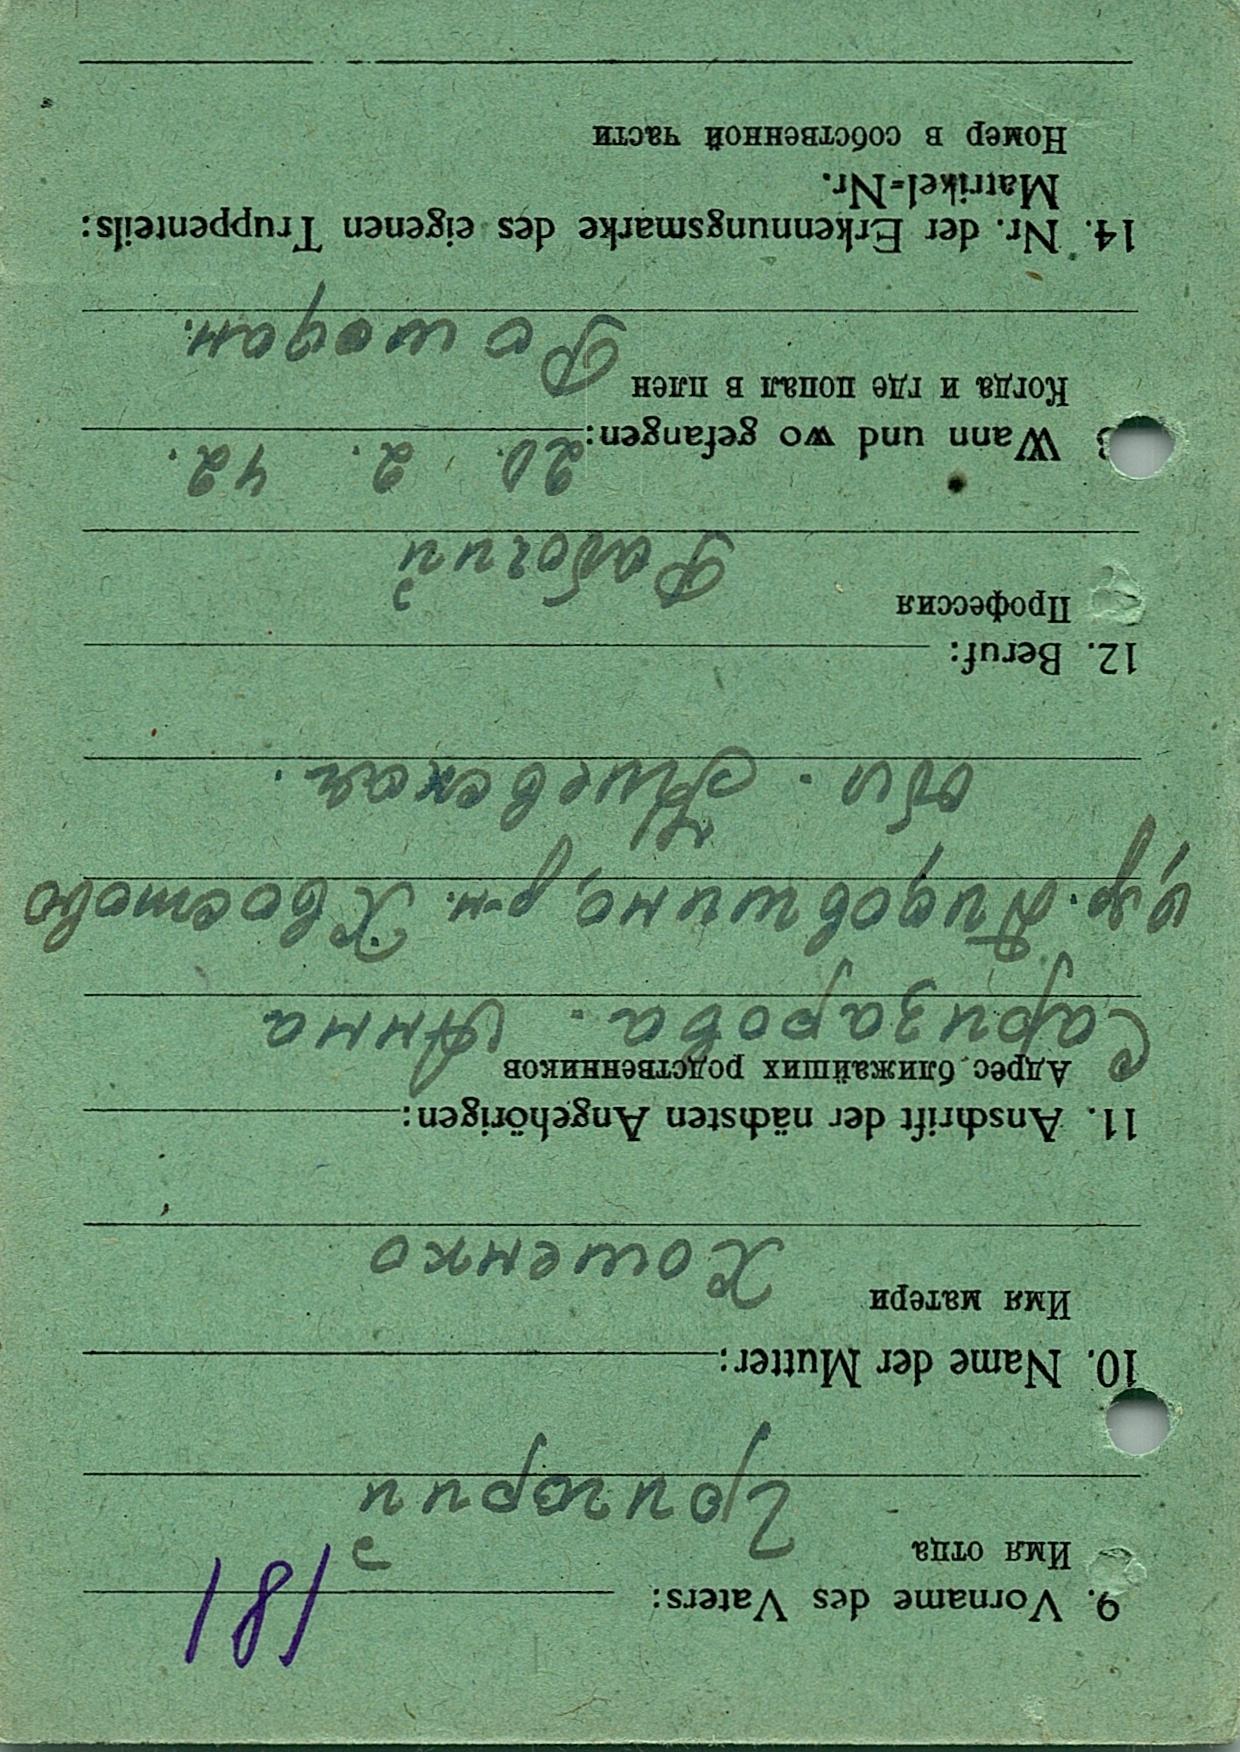 181
9. Vorname des Vaters:
Имя отца
Григорий
10. Name der Mutter:
Имя матери
Хошенко
11. Anschrift der nächsten Angehörigen:
Адрес ближайших родственников
Саризарова. Анна
р-н. Хвостово
обл. Киевская.
12. Beruf:
Профессия
Рабочий
20. 2. 42.
Wann und wo gefangen:
Когда и где попал в плен
14. Nr. der Erkennungsmarke des eigenen Truppenteils:
Matrikel-Nr.
Номер в собственной части